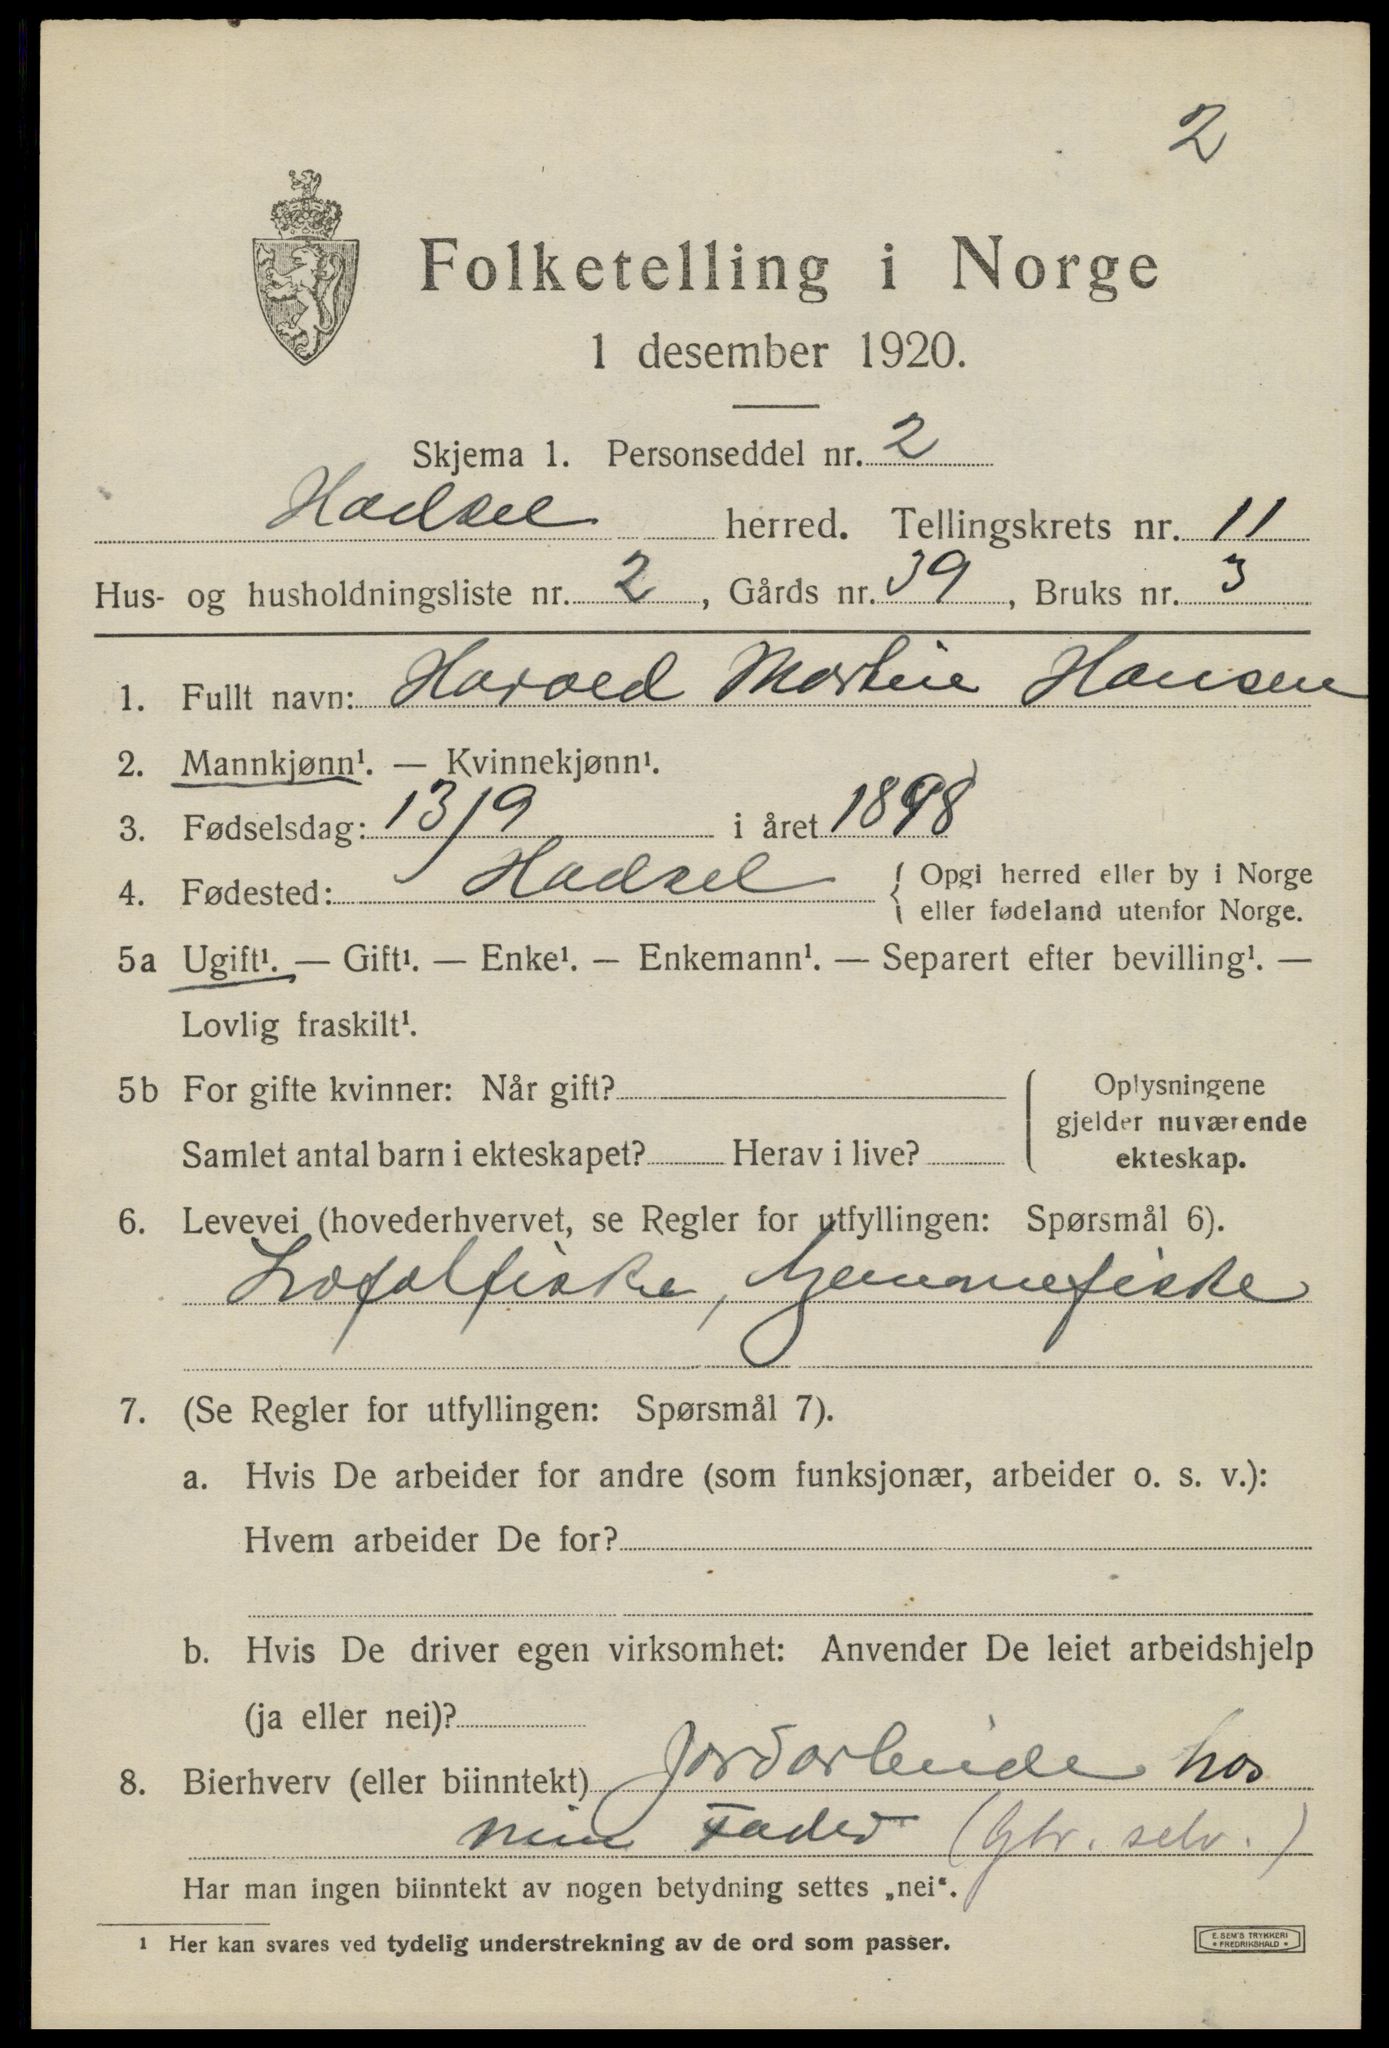 2
Folketelling i Norge
1 desember 1920.
Skjema 1. Personseddel nr. 2
Hadsel herred. Tellingskrets nr. 11
Hus- og husholdningsliste nr. 2, Gårds nr. 39, Bruks nr. 3
1. Fullt navn: Harald Martin Hansen
2. Mannkjønn¹. — Kvinnekjønn¹.
3. Fødselsdag: 13/9 i året 1898
4. Fødested: Hadsel { Opgi herred eller by i Norge
eller fødeland utenfor Norge.
5a Ugift¹. — Gift¹. — Enke¹. — Enkemann¹. — Separert efter bevilling¹. —
Lovlig fraskilt¹.
5b For gifte kvinner: Når gift?
Samlet antal barn i ekteskapet? Herav i live?
Oplysningene
gjelder nuværende
ekteskap.
6. Levevei (hovederhvervet, se Regler for utfyllingen: Spørsmål 6).
Lofotfiske, hjemmefiske
7. (Se Regler for utfyllingen: Spørsmål 7).
a. Hvis De arbeider for andre (som funksjonær, arbeider o. s. v.):
Hvem arbeider De for?
b. Hvis De driver egen virksomhet: Anvender De leiet arbeidshjelp
(ja eller nei)?
8. Bierhverv (eller biinntekt) Jordarbeide hos
min Fader (Gbr. selv.)
Har man ingen biinntekt av nogen betydning settes „nei“.
¹ Her kan svares ved tydelig understrekning av de ord som passer.
E. SEM'S TRYKKERI
• FREDRIKSHALD •